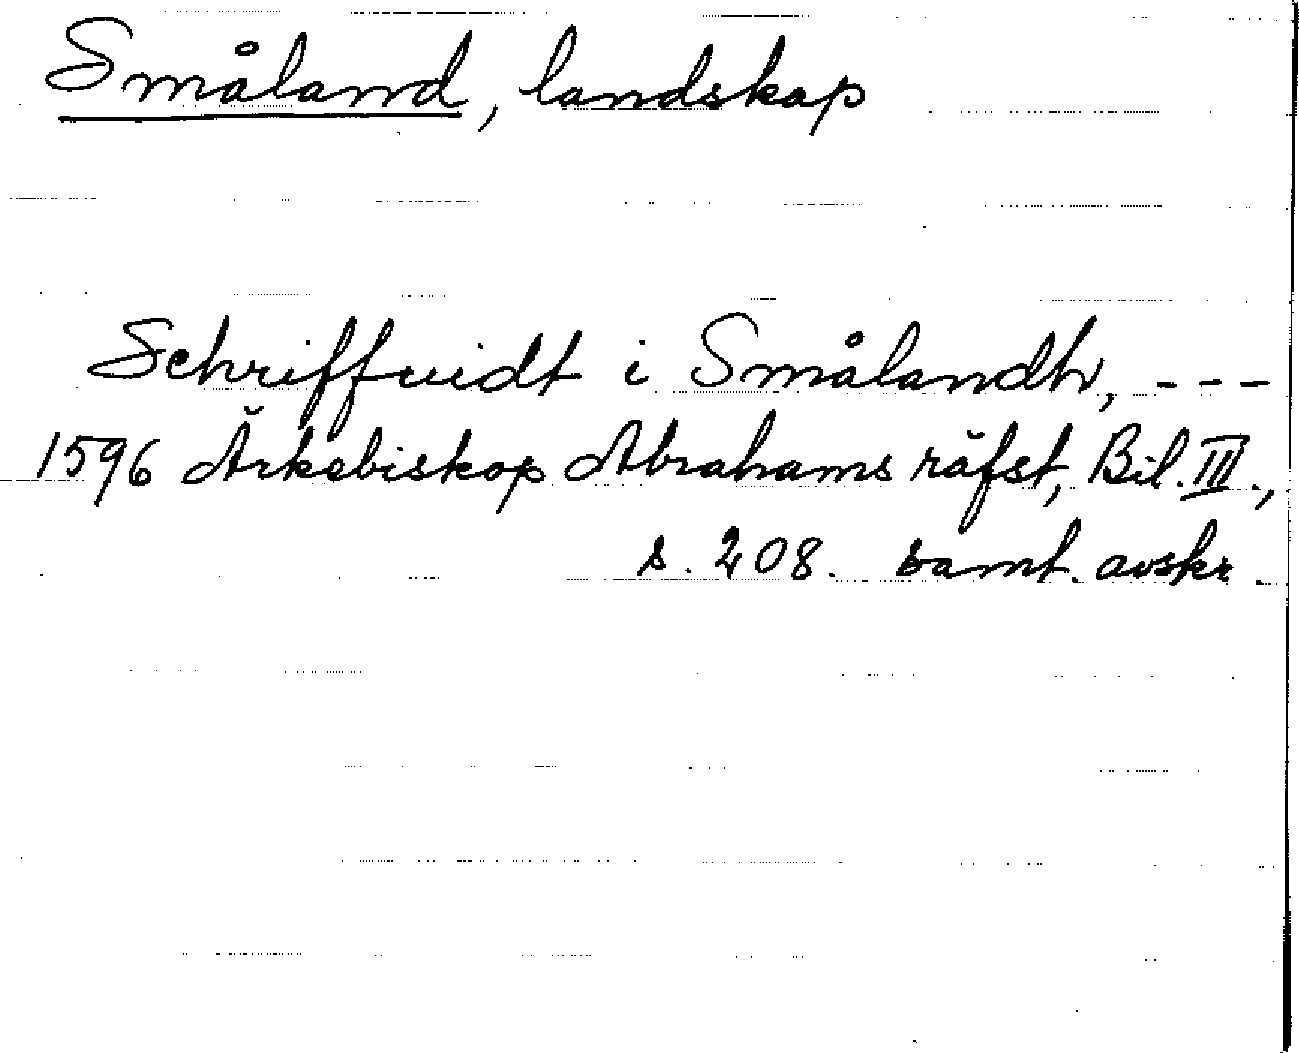 Småland, landskap
Schriffuidt i Smålandh, - - -
1596 Ärkebiskop Abrahams räfst, Bil. III.,
s. 208. samt. avskr.